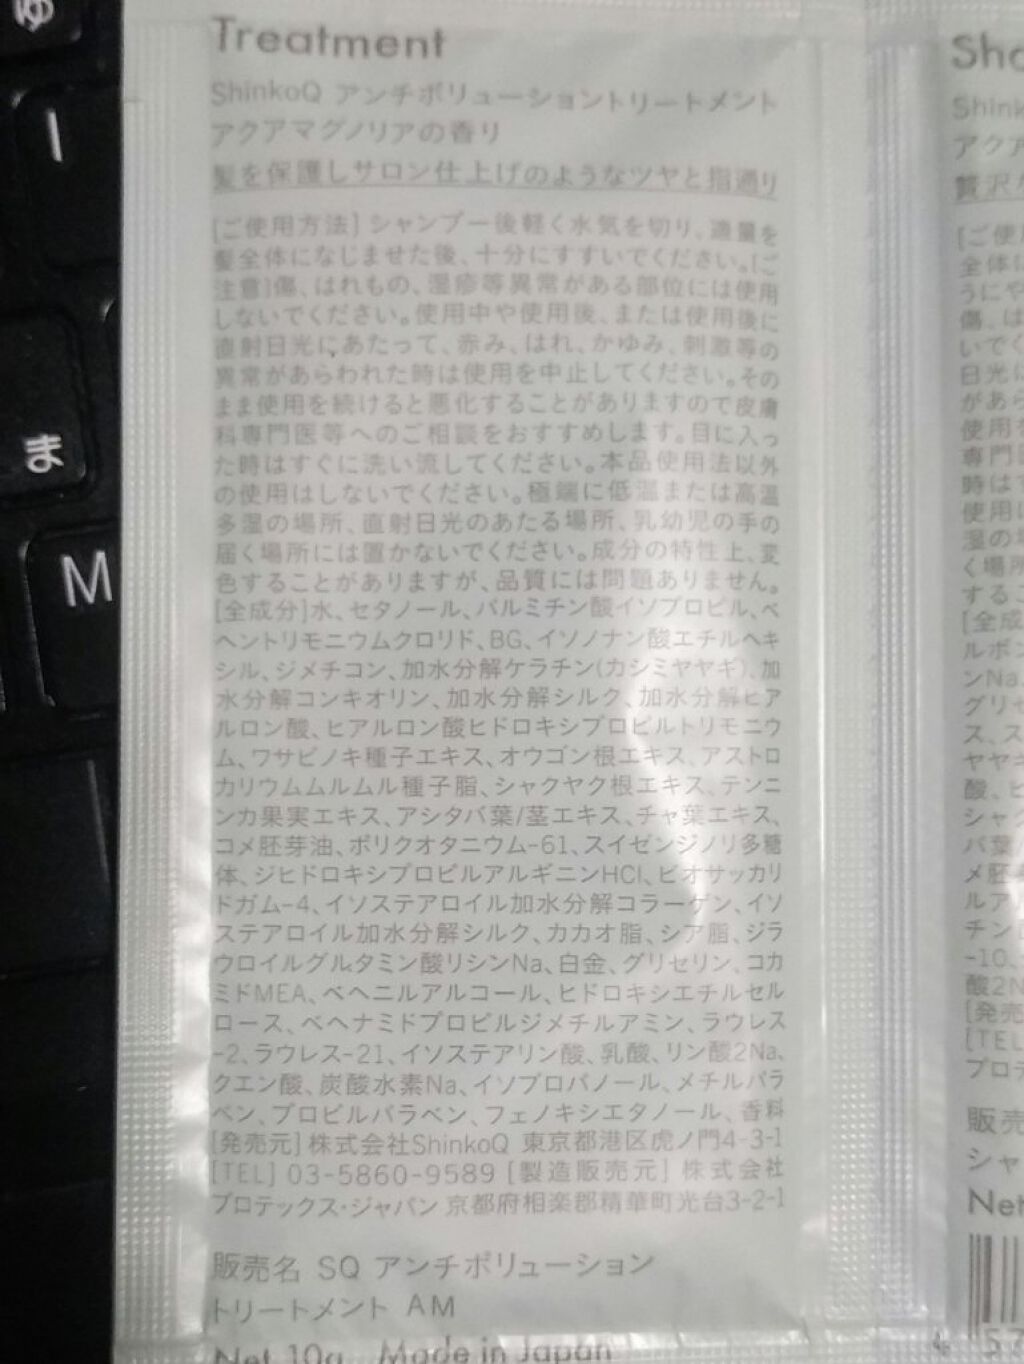 Treatment
ShinkoQ アンチポリューショントリートメント
アクアマグノリアの香り
髪を保護しサロン仕上げのようなツヤと指通り
[ご使用方法]シャンプー後軽く水気を切り、適量を
髪全体になじませた後、十分にすすいでください。[ご
注意]傷、はれもの、湿疹等異常がある部位には使用
しないでください。使用中や使用後、または使用後に
直射日光にあたって、赤み、はれ、かゆみ、刺激等の
異常があらわれた時は使用を中止してください。その
まま使用を続けると悪化することがありますので皮膚
科専門医等へのご相談をおすすめします。目に入っ
た時はすぐに洗い流してください。本品使用法以外
の使用はしないでください。極端に低温または高温
多湿の場所、直射日光のあたる場所、乳幼児の手の
届く場所には置かないでください。成分の特性上、変
色することがありますが、品質には問題ありません。
[全成分]水、セタノール、パルミチン酸イソプロピル、ベ
ヘントリモニウムクロリド、BG、イソノナン酸エチルヘキ
シル、ジメチコン、加水分解ケラチン(カシミヤヤギ)、加
水分解コンキオリン、加水分解シルク、加水分解ヒア
ルロン酸、ヒアルロン酸ヒドロキシプロピルトリモニウ
ム、ワサビノキ種子エキス、オウゴン根エキス、アストロ
カリウムムルムル種子脂、シャクヤク根エキス、テンニ
ンカ果実エキス、アシタバ葉/茎エキス、チャ葉エキス、
コメ胚芽油、ポリクオタニウム-61、スイゼンジノリ多糖
体、ジヒドロキシプロピルアルギニンHCl、ビオサッカリ
ドガム-4、イソステアロイル加水分解コラーゲン、イソ
ステアロイル加水分解シルク、カカオ脂、シア脂、ジラ
ウロイルグルタミン酸リシンNa、白金、グリセリン、コカ
ミドMEA、ベヘニルアルコール、ヒドロキシエチルセル
ロース、ベヘナミドプロピルジメチルアミン、ラウレス
-2、ラウレス-21、イソステアリン酸、乳酸、リン酸2Na、
クエン酸、炭酸水素Na、イソプロパノール、メチルパラ
ベン、プロピルパラベン、フェノキシエタノール、香料
[発売元]株式会社ShinkoQ 東京都港区虎ノ門4-3-1
[TEL] 03-5860-9589 [製造販売元] 株式会社
プロテックス・ジャパン 京都府相楽郡精華町光台3-2-1
販売名 SQ アンチポリューション
トリートメント AM
Net 10g Made in Japan
ゆ
ー
ま
M